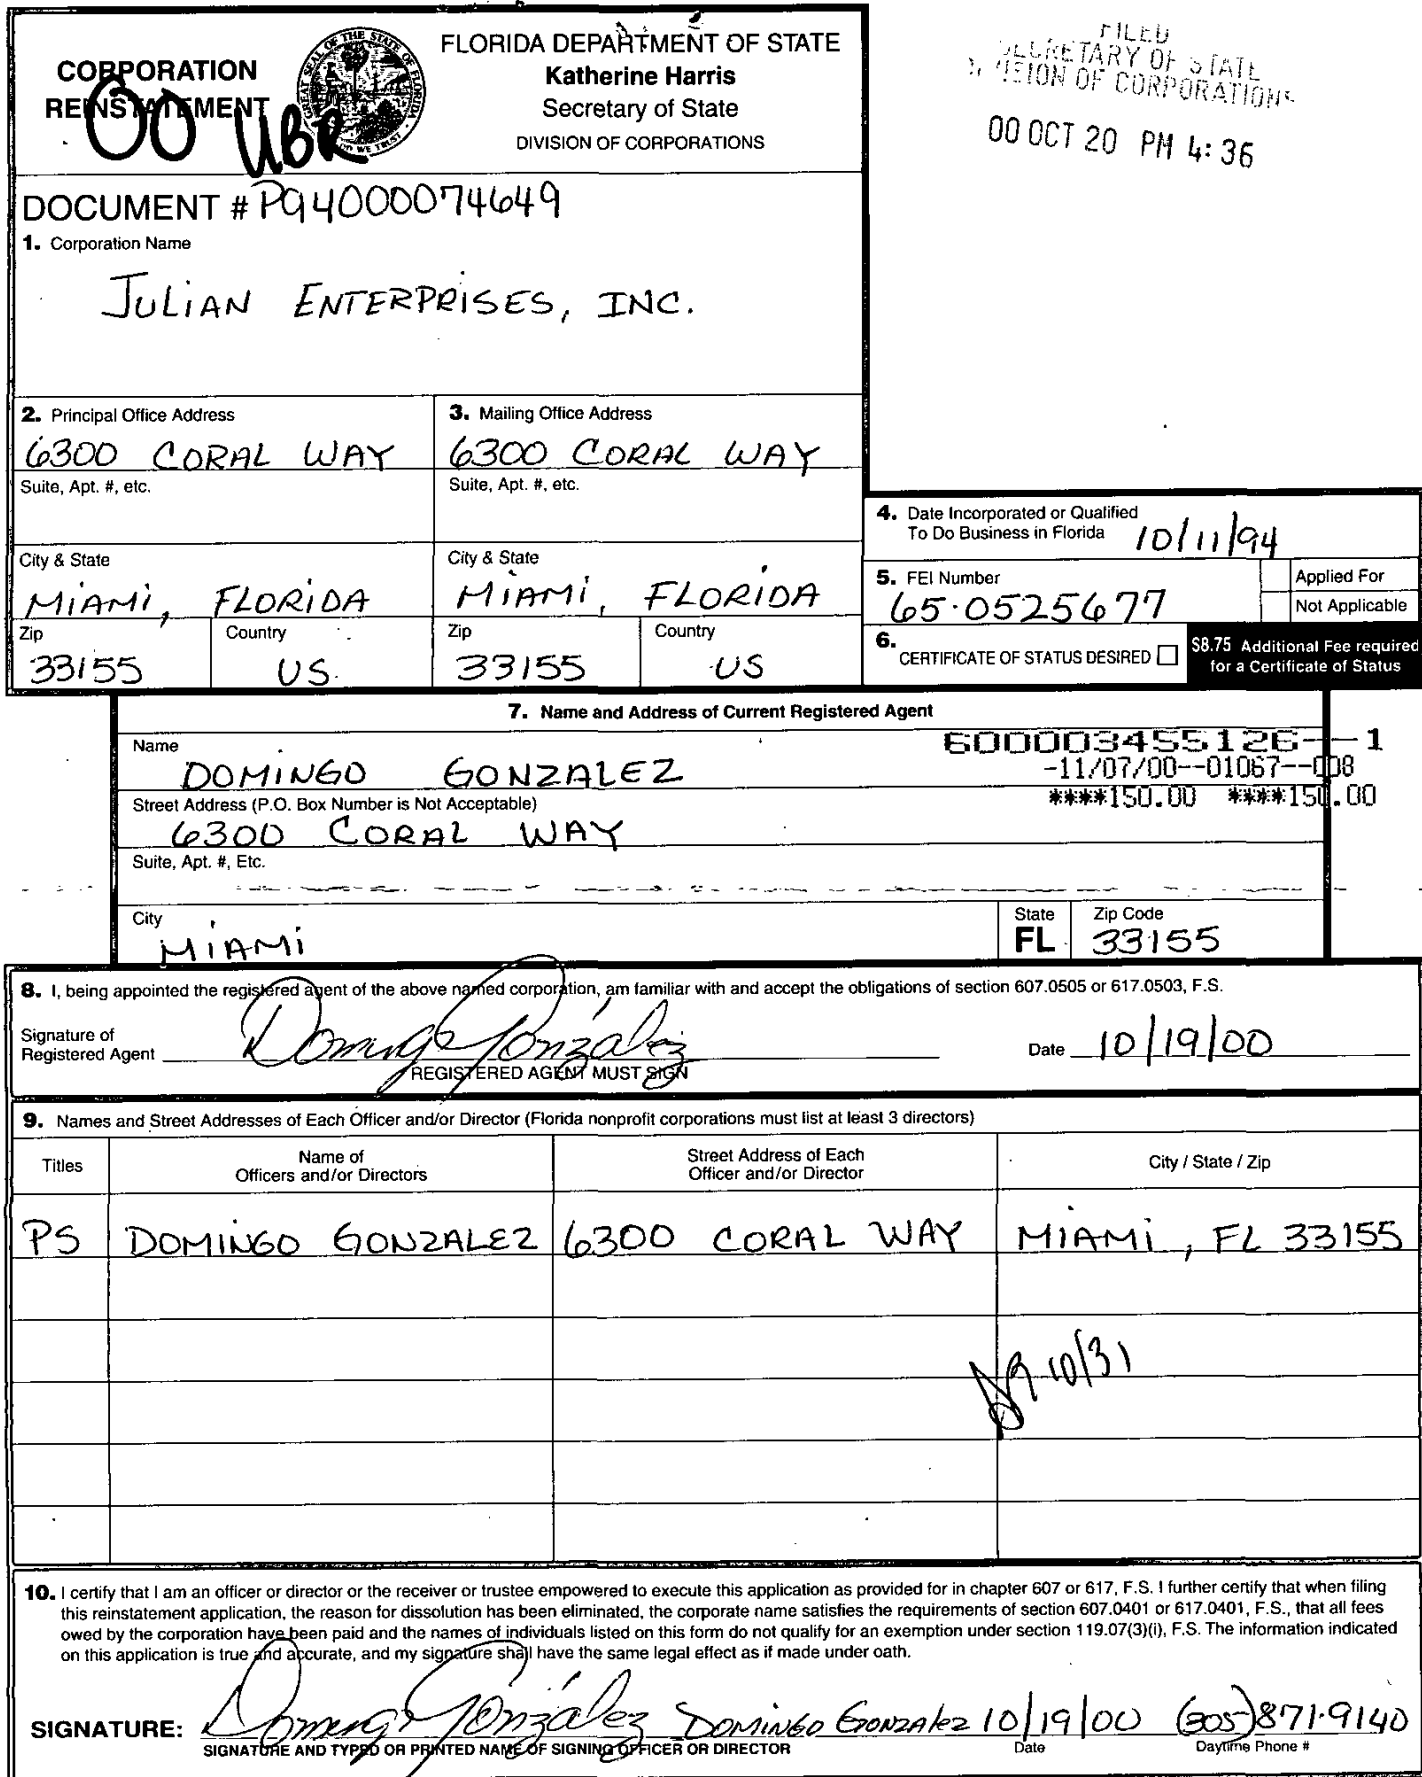 CORPORATION
REINSTATEMENT
00 UBR
FLORIDA DEPARTMENT OF STATE
Katherine Harris
Secretary of State
DIVISION OF CORPORATIONS
FILED
SECRETARY OF STATE
DIVISION OF CORPORATIONS
00 OCT 20 PM 4:36
DOCUMENT # P94000074649
1. Corporation Name
JULIAN ENTERPRISES, INC.
2. Principal Office Address
6300 CORAL WAY
Suite, Apt. #, etc.
City & State
MIAMI, FLORIDA
Zip
33155
Country
US
3. Mailing Office Address
6300 CORAL WAY
Suite, Apt. #, etc.
City & State
MIAMI, FLORIDA
Zip
33155
Country
US
4. Date Incorporated or Qualified
To Do Business in Florida 10/11/94
5. FEI Number
65-0525677
Applied For
Not Applicable
6. CERTIFICATE OF STATUS DESIRED
$8.75 Additional Fee required
for a Certificate of Status
7. Name and Address of Current Registered Agent
Name
DOMINGO GONZALEZ
600003455126--1
-11/07/00--01067--008
****150.00 ****150.00
Street Address (P.O. Box Number is Not Acceptable)
6300 CORAL WAY
Suite, Apt. #, Etc.
City
MIAMI
State
FL
Zip Code
33155
8. I, being appointed the registered agent of the above named corporation, am familiar with and accept the obligations of section 607.0505 or 617.0503, F.S.
Signature of
Registered Agent Domingo González
REGISTERED AGENT MUST SIGN
Date 10/19/00
9. Names and Street Addresses of Each Officer and/or Director (Florida nonprofit corporations must list at least 3 directors)
Titles
Name of
Officers and/or Directors
Street Address of Each
Officer and/or Director
City / State / Zip
PS DOMINGO GONZALEZ 6300 CORAL WAY MIAMI, FL 33155
10/31
10. I certify that I am an officer or director or the receiver or trustee empowered to execute this application as provided for in chapter 607 or 617, F.S. I further certify that when filing
this reinstatement application, the reason for dissolution has been eliminated, the corporate name satisfies the requirements of section 607.0401 or 617.0401, F.S., that all fees
owed by the corporation have been paid and the names of individuals listed on this form do not qualify for an exemption under section 119.07(3)(i), F.S. The information indicated
on this application is true and accurate, and my signature shall have the same legal effect as if made under oath.
SIGNATURE: Domingo González DOMINGO GONZALEZ 10/19/00 (305)871-9140
SIGNATURE AND TYPED OR PRINTED NAME OF SIGNING OFFICER OR DIRECTOR
Date
Daytime Phone #